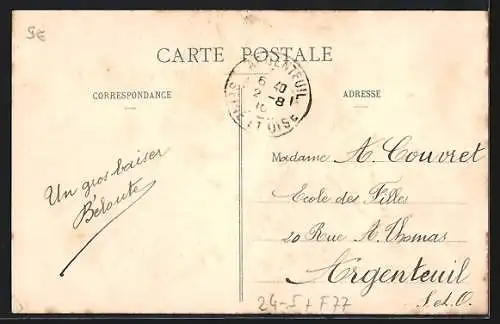 5E
CARTE POSTALE
CORRESPONDANCE
ADRESSE
ARGENTEUIL
6 40
2 -8
10
SEINE ET OISE
Un gros baiser
Béloute
Madame A. Couvret
Ecole des Filles
20 Rue A. Thomas
Argenteuil
S et O.
24-5 + F77